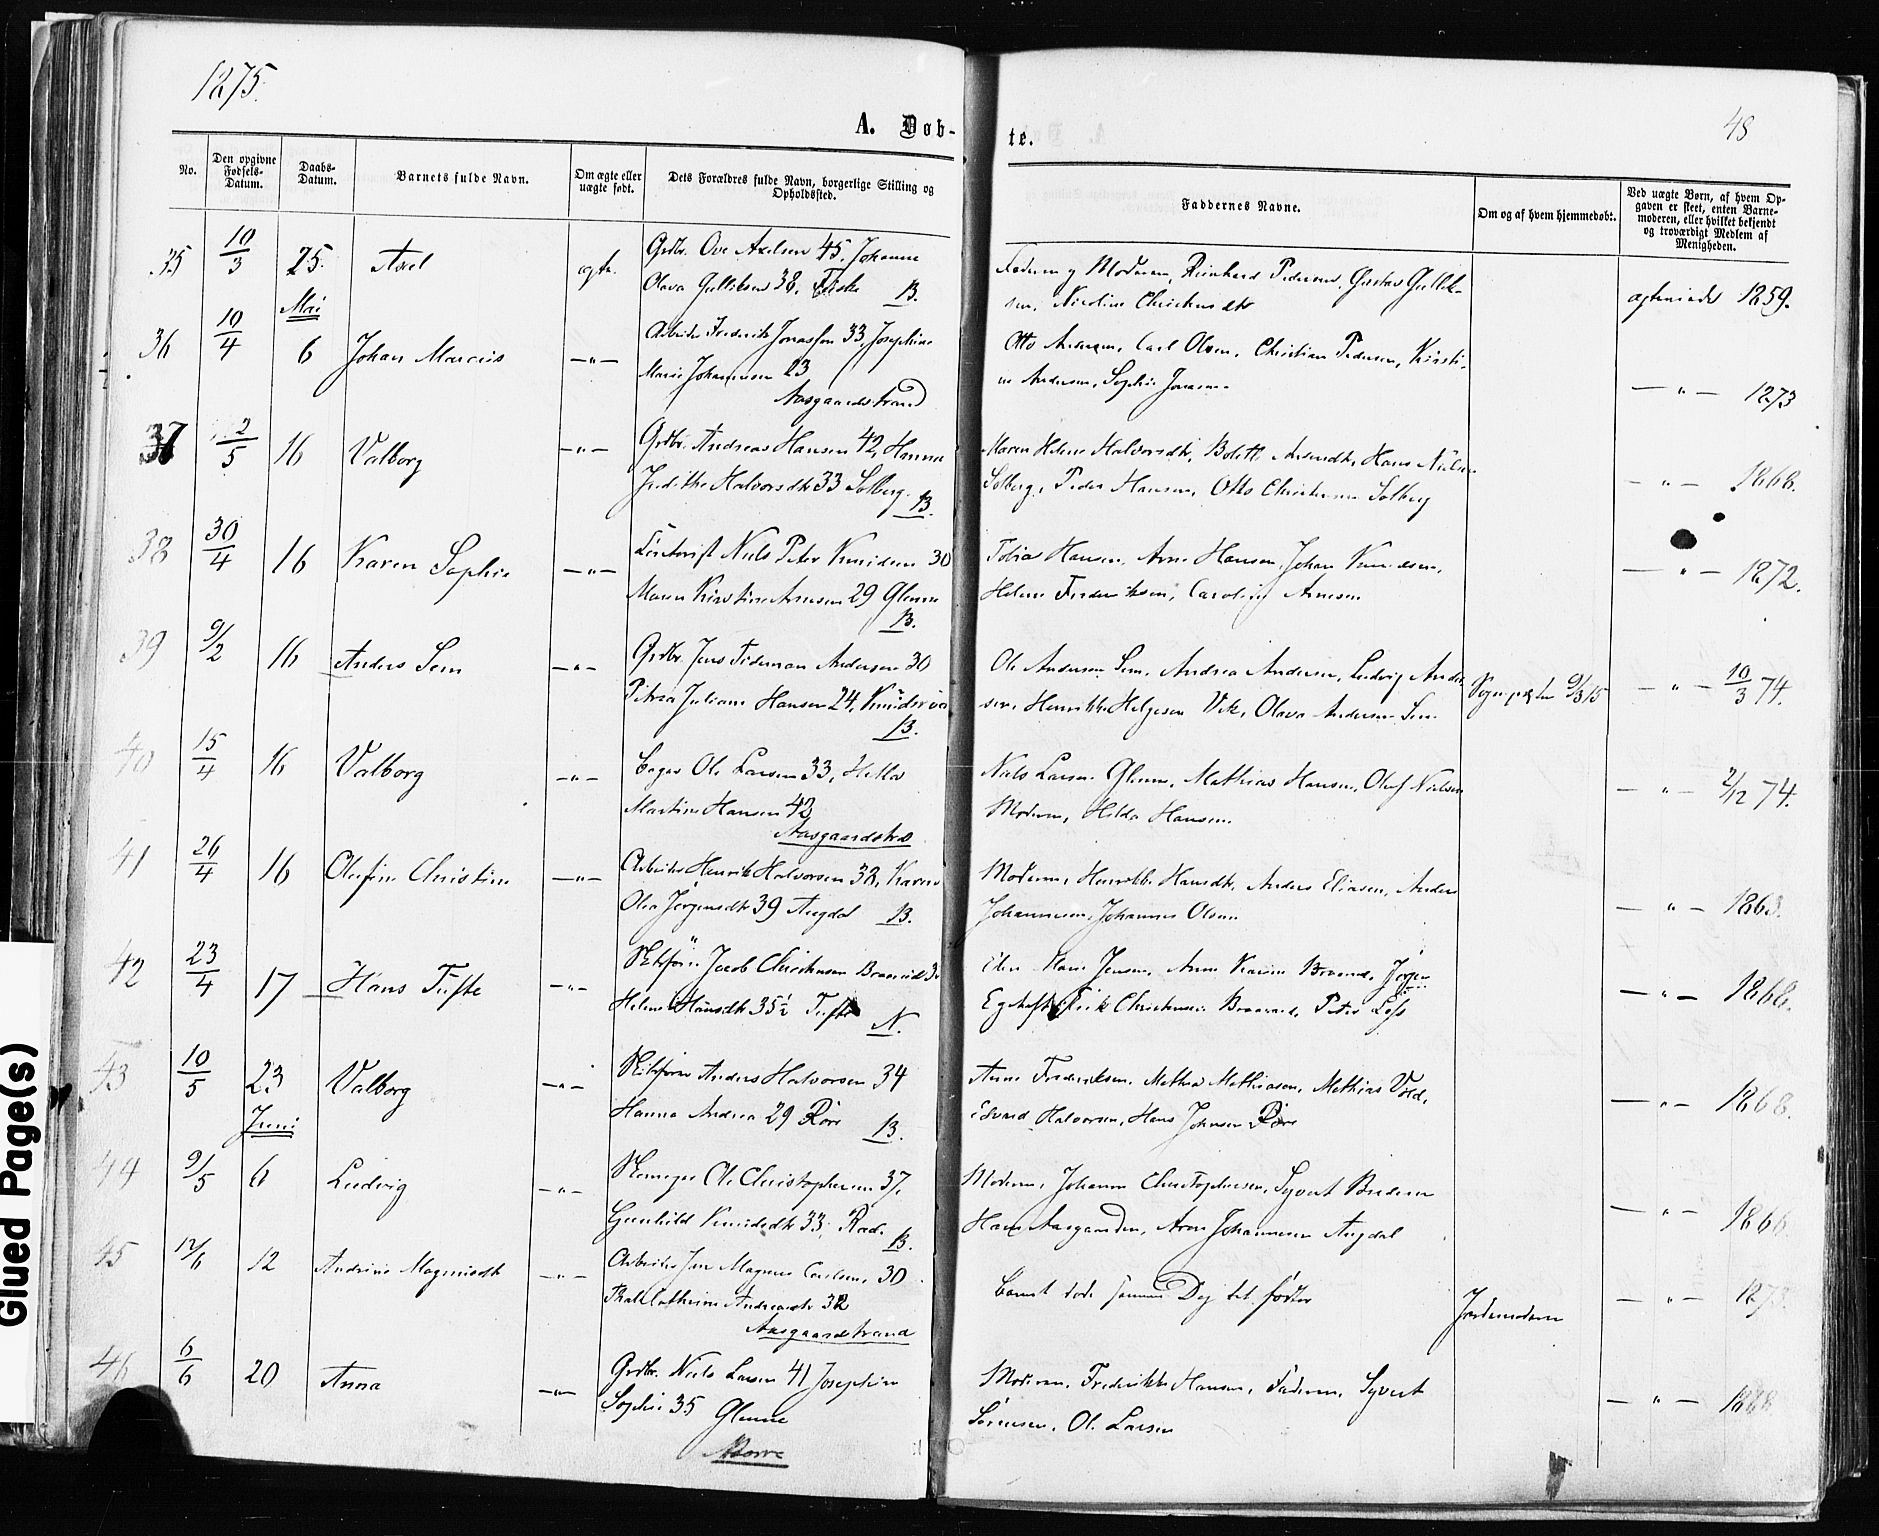 1875.
48
A. Døb-
te.
No.
Den opgivne Fødsels-Datum.
Daabs-Datum.
Barnets fulde Navn.
Om ægte eller uægte født.
Dets Forældres fulde Navn, borgerlige Stilling og Opholdssted.
Faddernes Navne.
Om og af hvem hjemmedøbt.
Ved uægte Børn, af hvem Opgaven er skeet, enten Barnemoderen, eller hvilket bekjendt og troværdigt Medlem af Menigheden.
35 10/3 25. Axel ægte. Grdbr. Ove Axelsen 45, Johanne
Olava Gulliksen 38, B.
Faderen og Moderen, Reinhard Pedersen, Gustav Gullik-
sen, Nicoline Christensdtr
1859.
Mai
36 10/4 6 Johan Marcius —"— Arbeider Frederik Jonassen 33, Josephine
Marie Johannesen 23
Aasgaardstrand
Otto Andersen, Carl Olsen, Christian Pedersen, Kirsti-
ne Andersen, Sophie Jonassen
—"— 1873
37 2/5 16 Valborg —"— Grdbr. Andreas Hansen 42, Hanna
Judithe Halvorsdtr 33 Solberg. B.
Maren Helene Halvorsdtr, Hans Nielsen
Solberg, Peder Hansen, Otto Christensen Solberg
—"— 1868.
38 30/4 16 Karen Sophie —"— Niels Peter Knudsen 30
Maren Kirstine Arnesen 29 Glenne
B.
Tobias Hansen, Arne Hansen, Johan Knudsen,
Helene Frederiksen, Caroline Arnesen
—"— 1872.
39 9/2 16 Anders Sem —"— Grdbr. Jens Tideman Andersen 30
Petrea Juliane Hansen 24,
B.
Ole Andersen Sem, Andrea Andersen, Ludvig Ander-
sen, Henrikke Helgesen Vik, Olava Andersen Sem
—"— 10/3 74.
40 15/4 16 Valborg —"— Ole Larsen 33,
Martine Hansen 42
Aasgaardstrd
Niels Larsen Glenne, Mathias Hansen, Oluf Nielsen
Moderen, Hilda Hansen
—"— 2/12 74.
41 26/4 16 Olufine Christine —"— Arbeider Henrik Halvorsen 38, Karen
Olea Jørgensdtr 39 Augdal B.
Moderen, Henrikke Hansdtr, Anders Eliasen, Anders
Johannesen, Johannes Olsen
—"— 1863.
42 23/4 17 Hans Tufte —"— Jacob Christensen
Helene Hansdtr 35½ Tufte N.
Jensen, Anne
Christensen Peder
—"— 1866.
43 10/5 23 Valborg —"— Anders Halvorsen 34
Hanna Andrea 29 Røre B.
Anne Frederiksen, Mathea Mathiasen, Mathias Vold,
Edvard Halvorsen, Hans Johnsen Røre
—"— 1868.
Juni
44 9/5 6 Ludvig —"— Ole Christophersen 37,
Gunhild Knudsdtr 33, Rad. B.
Moderen, Johanne Christophersen, Syvert
Hans Aasgaarden, Arne Johannesen Augdal
—"— 1866
45 12/6 12 Andrine Magnusdtr —"— Arbeider Magnus Carlsen, 30
Cathrine Andreasdtr 32
Aasgaardstrand
Barnet døde samme Dag det fødtes
Jordemoderen
—"— 1873.
46 6/6 20 Anna —"— Grdbr. Niels Larsen 41 Josephine
Sophie 35 Glenne
Borre
Moderen, Frederikke Hansen, Faderen, Syvert
Sørensen, Ole Larsen
—"— 1868
Glued Page(s)